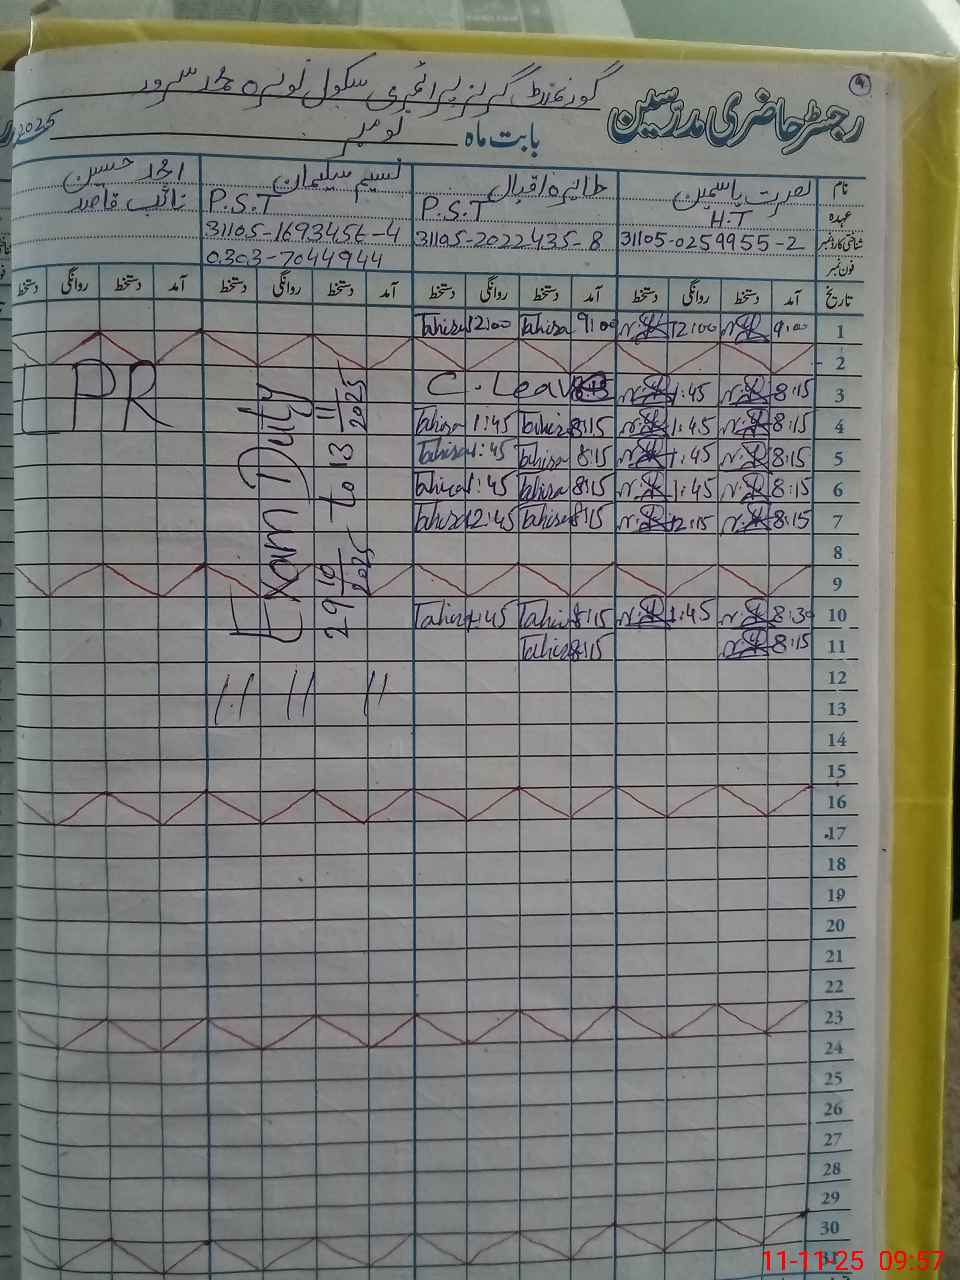 رجسٹر حاضری مدرسین
گورنمنٹ گرلز پرائمری سکول نوئرہ محمد سرور
بابت ماہ نومبر 2025
نام نصرت یاسمین طاہرہ اقبال نسیم سلیمان امجد حسین
عہدہ H.T P.S.T P.S.T نائب قاصد
شناختی کارڈ نمبر 31105-0259955-2 31105-2022435-8 31105-1693456-4
فون نمبر 0303-7044944
تاریخ آمد دستخط روانگی دستخط آمد دستخط روانگی دستخط آمد دستخط روانگی دستخط آمد دستخط روانگی دستخط
1 9:00 12:00 9:00 Tahira 12:00 Tahira
2
3 8:15 1:45 C. Leav
4 8:15 1:45 8:15 Tahira 1:45 Tahira
5 8:15 1:45 8:15 Tahira 1:45 Tahira
6 8:15 1:45 8:15 Tahira 1:45 Tahira
7 8:15 12:15 8:15 Tahira 12:45 Tahira
8
9
10 8:30 1:45 8:15 Tahira 1:45 Tahira
11 8:15 8:15 Tahira
12
13
14
15
16
17
18
19
20
21
22
23
24
25
26
27
28
29
30
31
Exam Duty
29 10/2025 to 13 11/2025
11 11 11
LPR
11-11-25 09:57